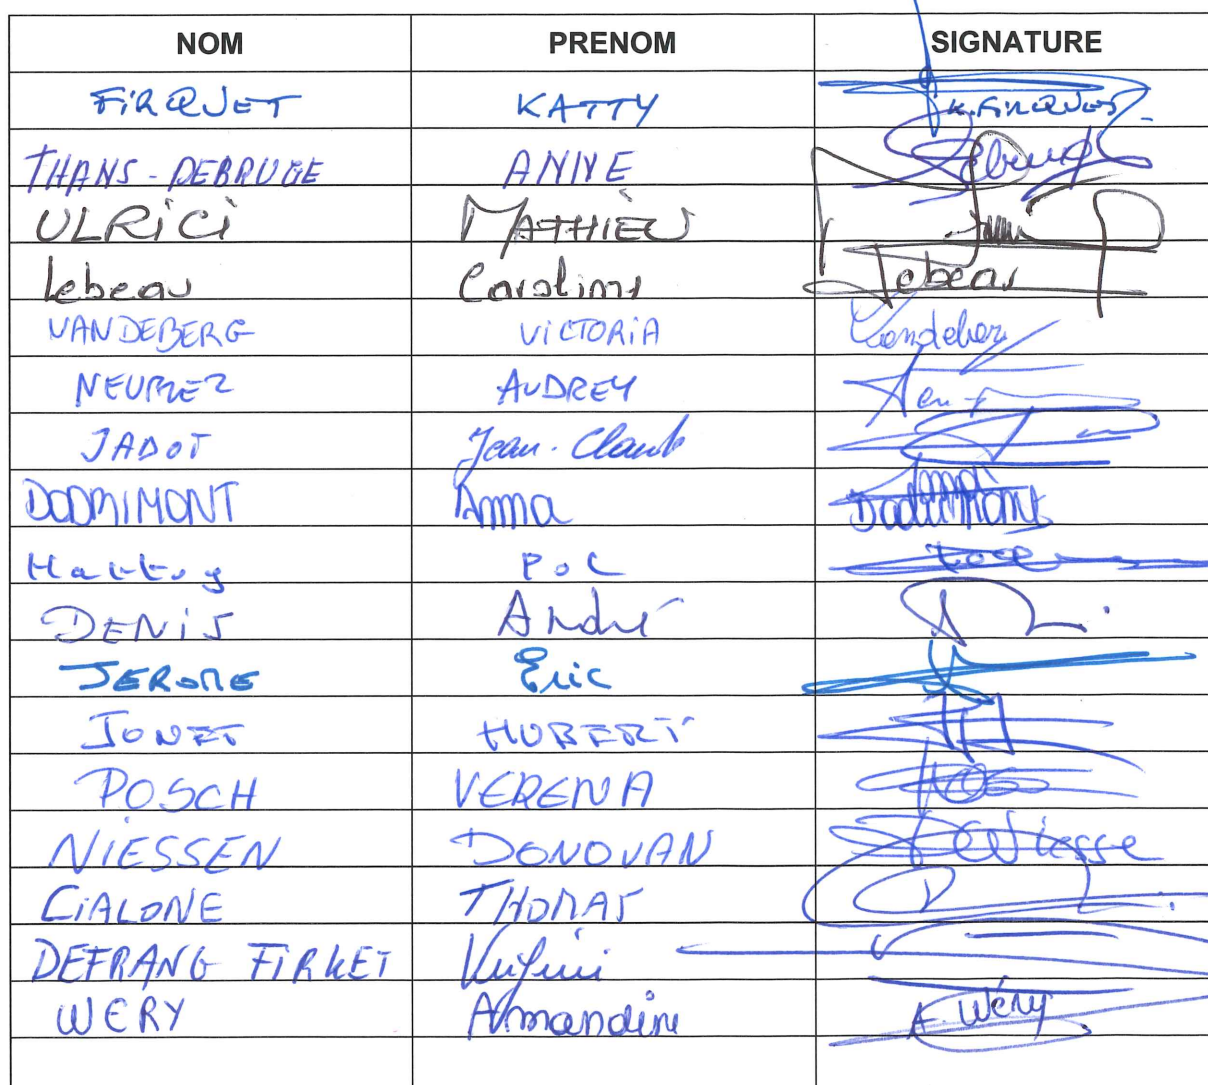 NOM PRENOM SIGNATURE
FIRQUET KATTY K. FIRQUET
THANS-DEBRUGE ANNE Debruge
ULRICI MATHIEU
Lebeau Caroline Lebeau
VANDEBERG VICTORIA Vandeberg
NEURAY AUDREY
JADOT Jean-Claude
DODRIMONT Anna Dodrimont
Hartog Pol
DENIS André
JEROME Eric
JONET HUBERT
POSCH VERENA
NIESSEN DONOVAN
CIALONE THOMAS
DEFRANG FIRKET Virginie
WERY Amandine A. Wéry